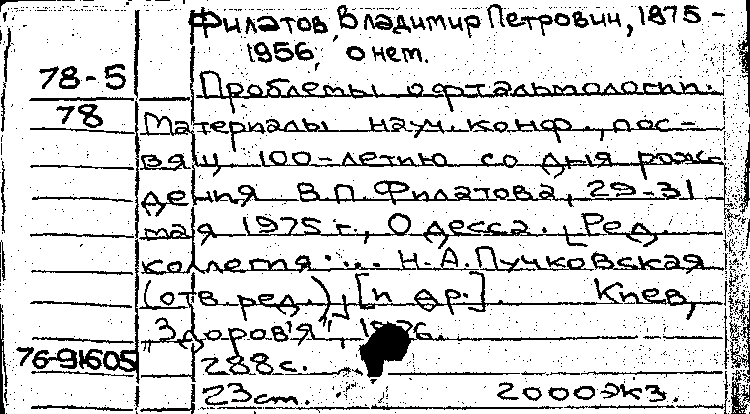 Филатов, Владимир Петрович, 1875-
1956, о нем.
78-5 Проблемы офтальмологии.
78 Материалы науч. конф., пос-
вящ. 100-летию со дня рож-
дения В.П. Филатова, 29-31
мая 1975 г., Одесса. [Ред.
коллегия: ... Н.А. Пучковская
(отв. ред.), [и др.]. Киев,
„Здоров'я", 1976.
76-91605 288 с.
23 cm. 2000 экз.